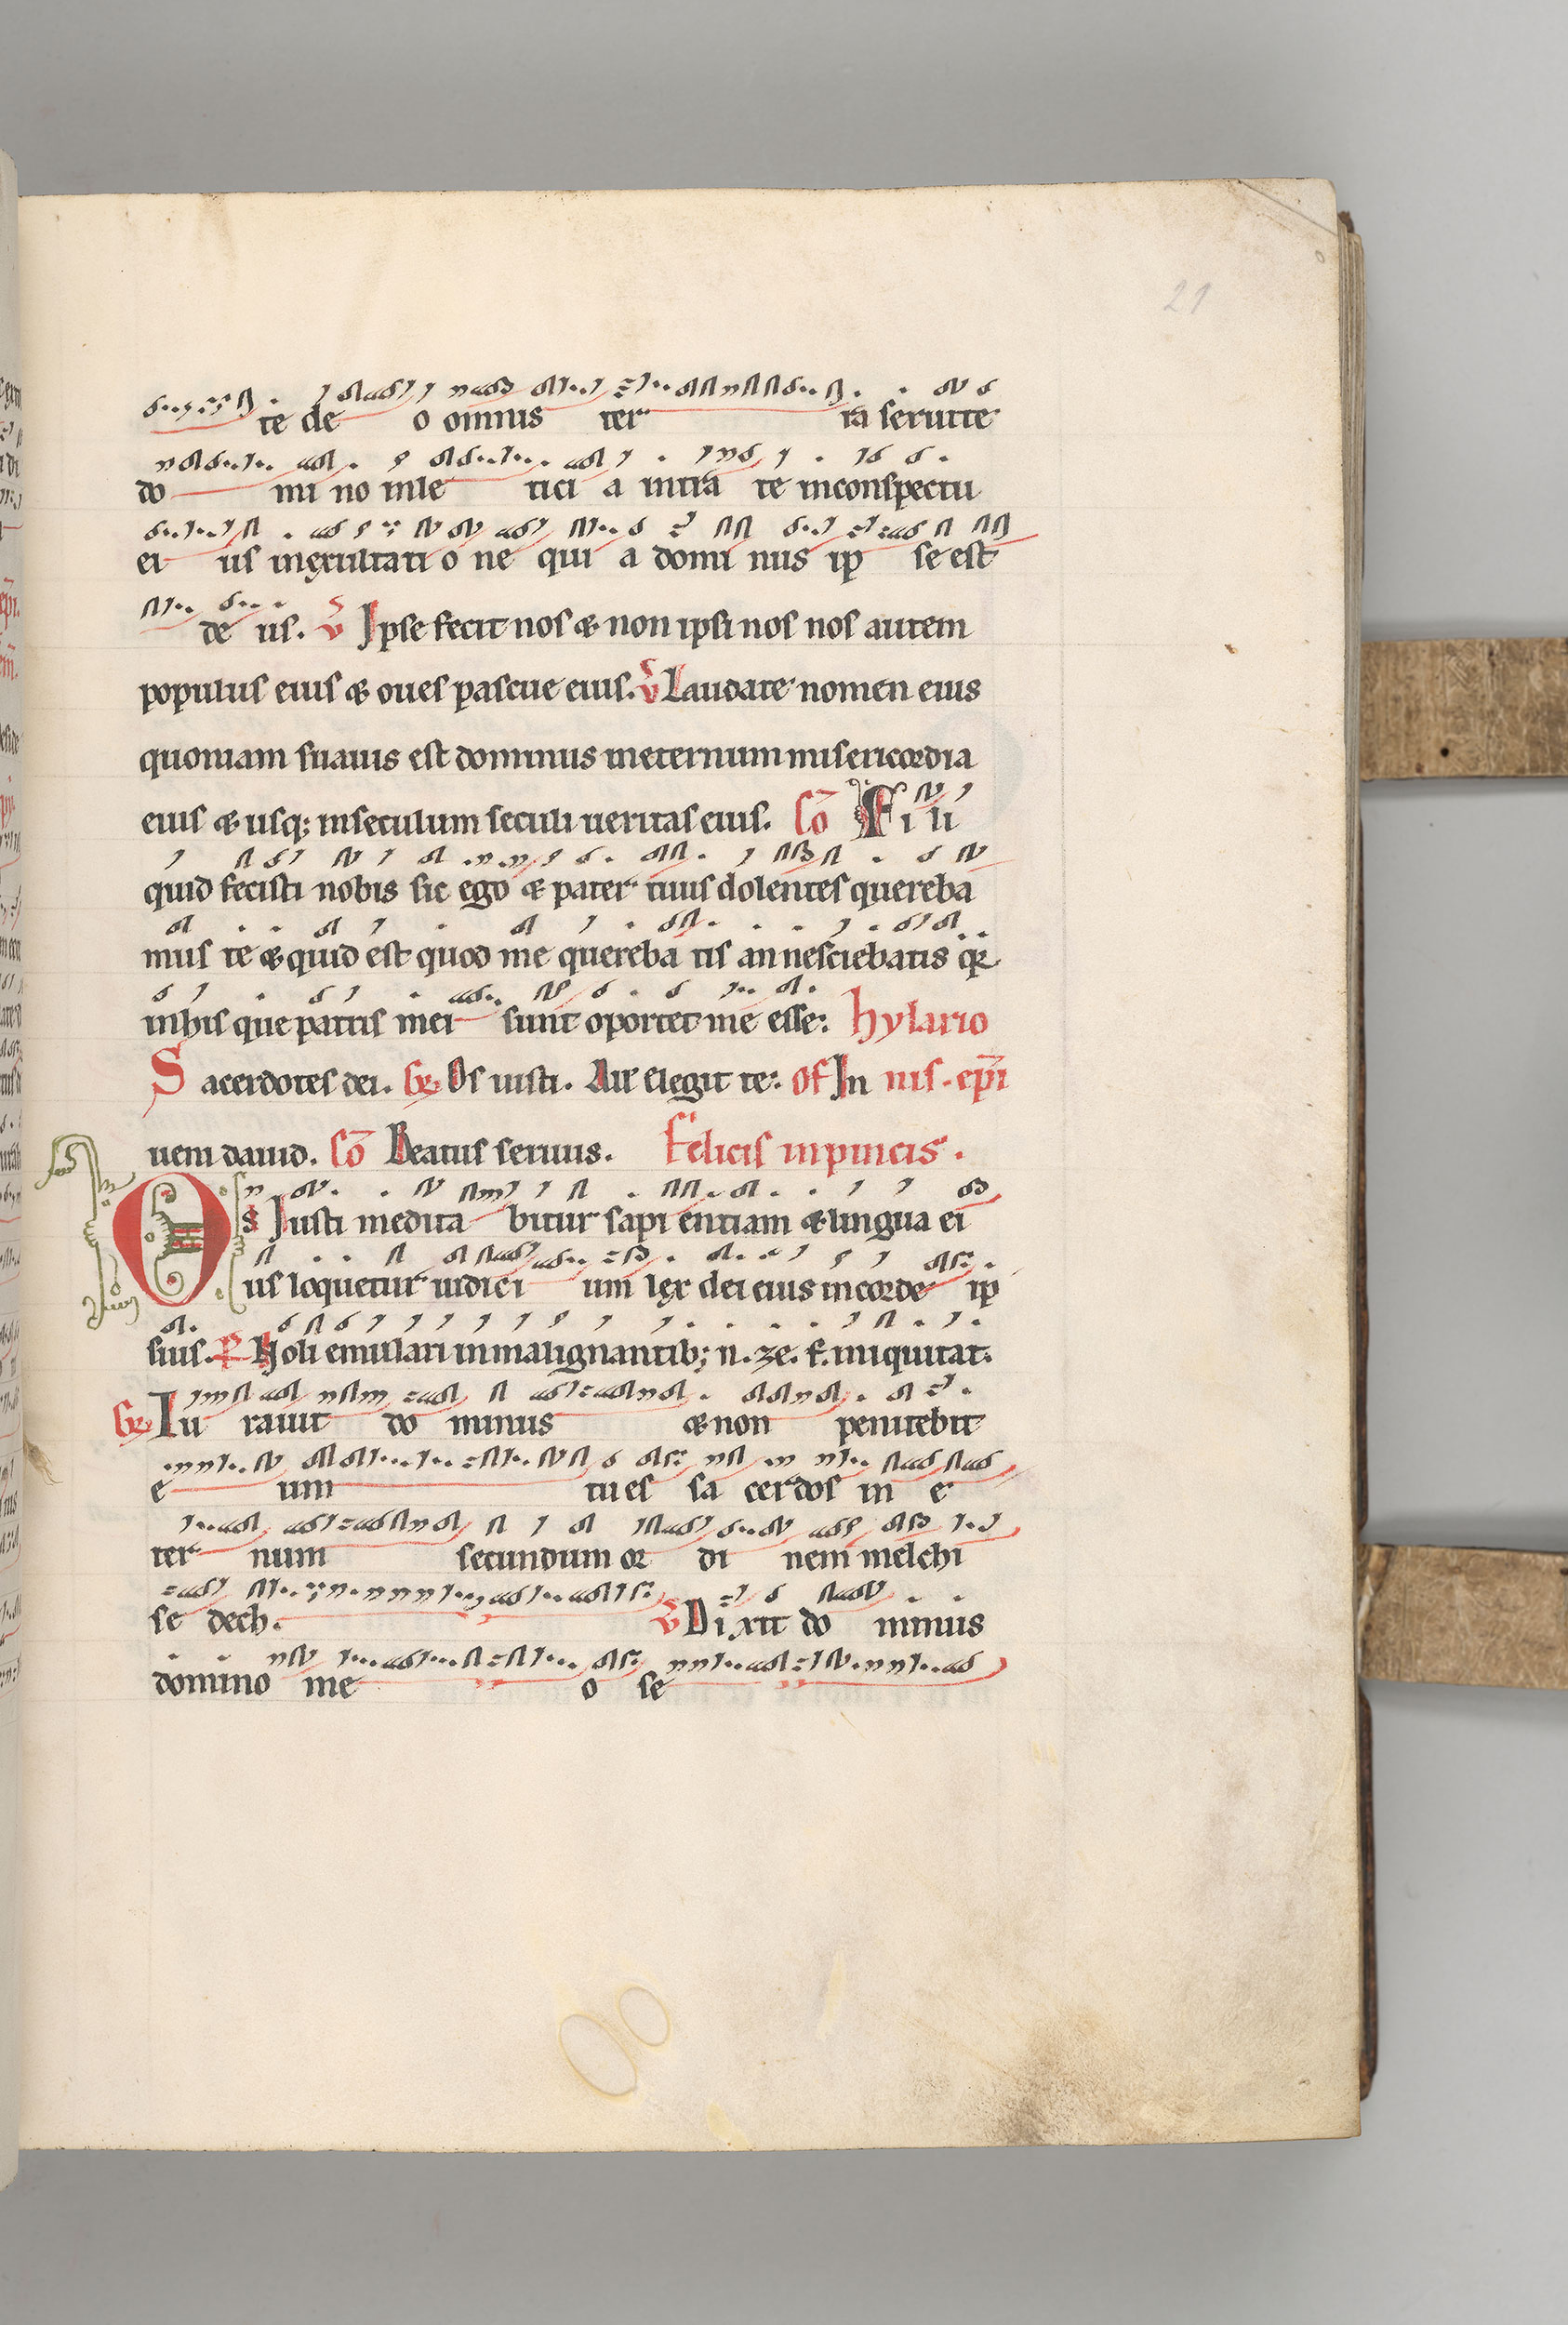 21
te de o omnis ter ra seruite
do mi no in le tici a intra te inconspectu
ei us inęxultati o ne qui a domi nus ip se est
de us. v Ipse fecit nos & non ipsi nos nos autem
populus eius & oues pascue eius. v Laudate nomen eius
quoniam suauis est dominus ineternum misericordia
eius & usq; inseculum seculi ueritas eius. Cō Fi li
quid fecisti nobis sic ego & pater tuus dolentes quereba
mus te & quid est quod me quereba tis an nesciebatis qr
inhis que patris mei sunt oportet me esse: hylario
Sacerdotes dei. Gr Os iusti. All elegit te: Of In nis. epī
ueni dauid. Cō Beatus seruus. Felicis inpincis.
Os Iusti medita bitur sapi entiam & lingua ei
us loquetur iudici um lęx dei eius incorde ip
sius. P Noli emulari inmalignantib; n. ze. f. iniquitat.
Gr Iu rauit do minus & non penitebit
e um tu es sa cerdos in e
ter num secundum or di nem melchi
se dech. v Di xit do minus
domino me o se